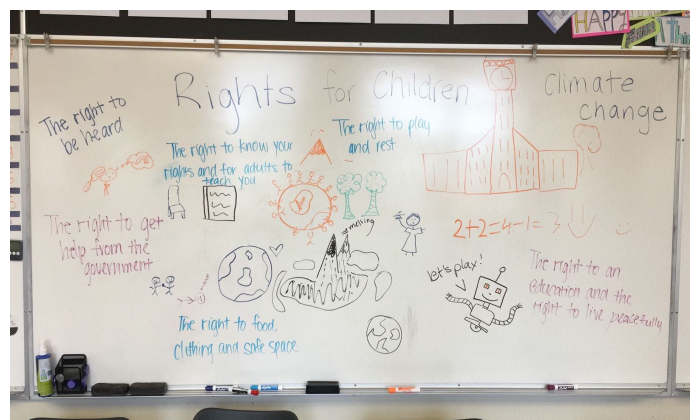 HAPPY
Rights for Children
Climate
change
The right to
be heard
The right to know your
rights and for adults to
teach you
The right to play
and rest
The right to get
help from the
government
melting
2+2=4-1=3
let's play!
The right to an
education and the
right to live peacefully
The right to food,
clothing and safe space